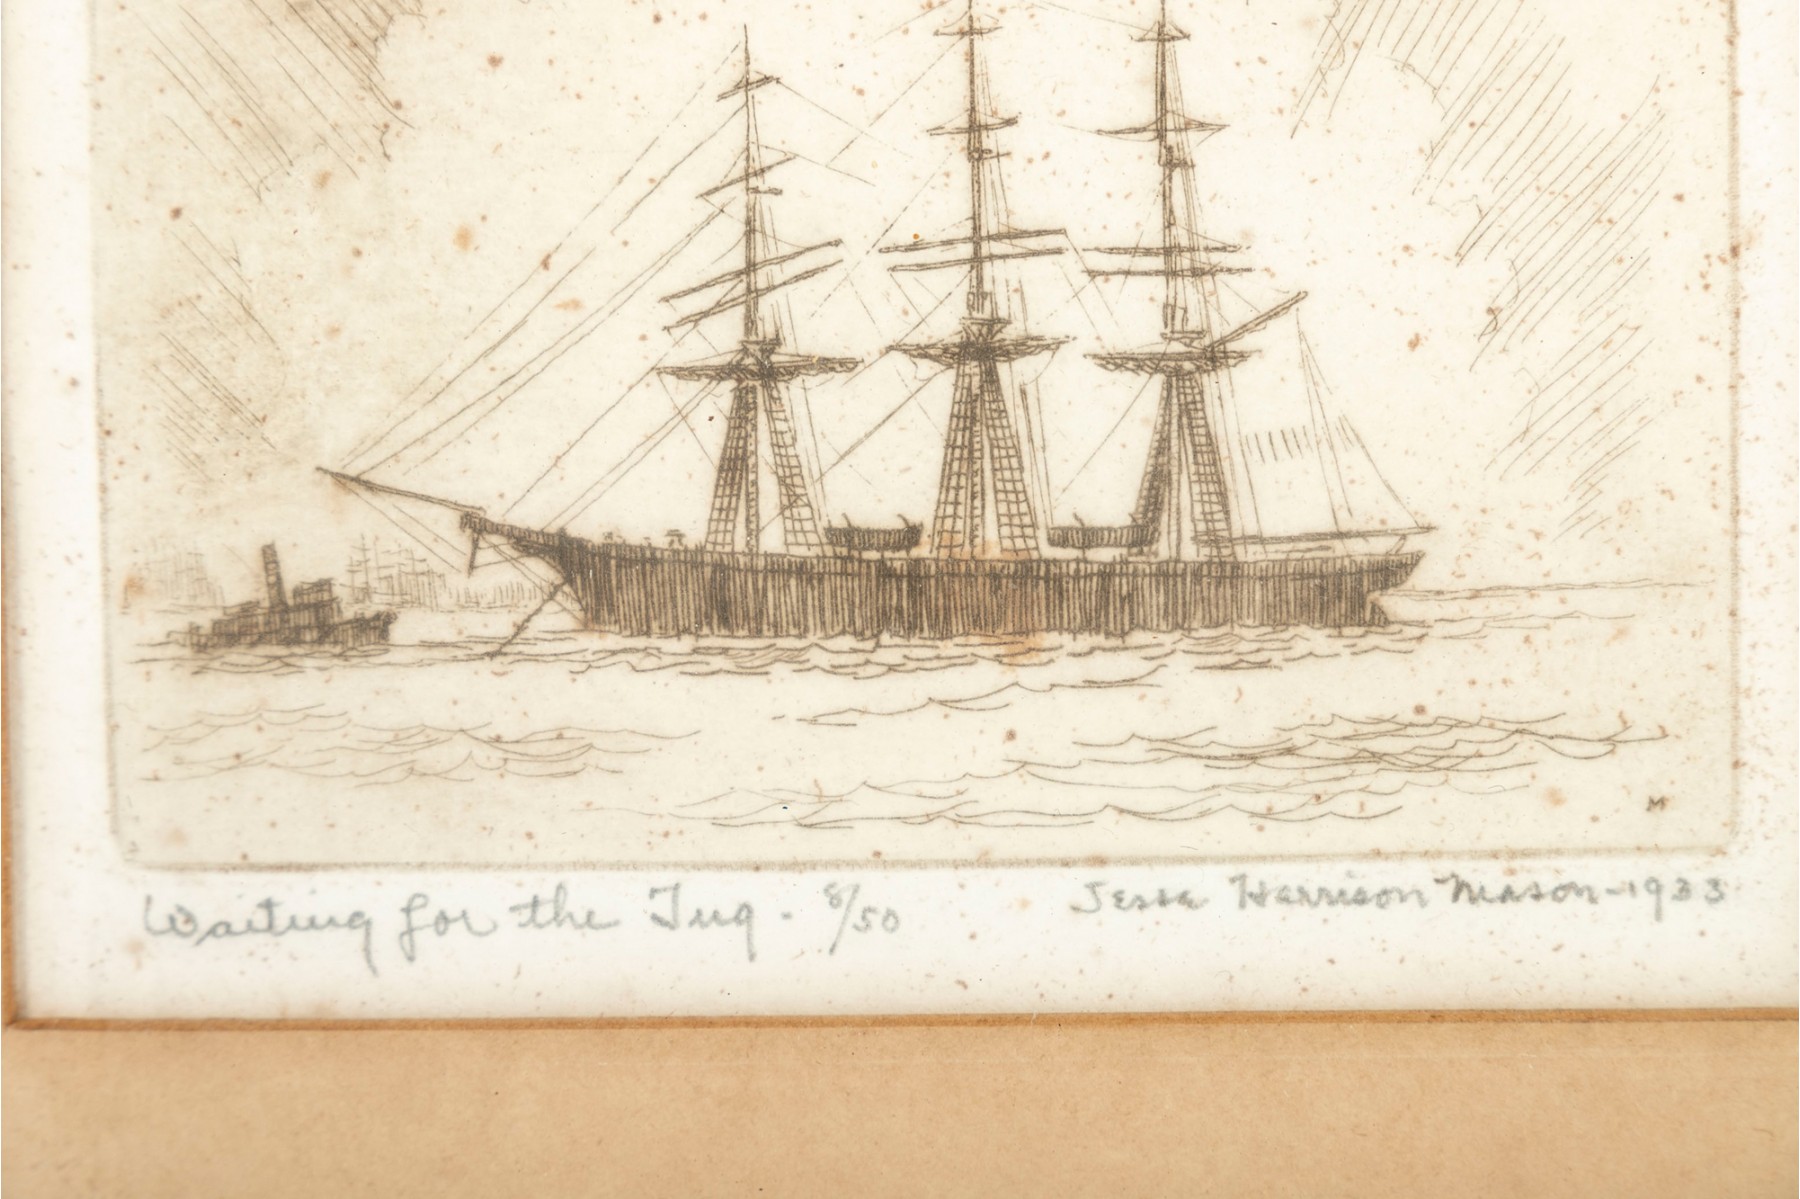 M
Waiting for the Tug - 8/50 Jesse Harrison Mason - 1933